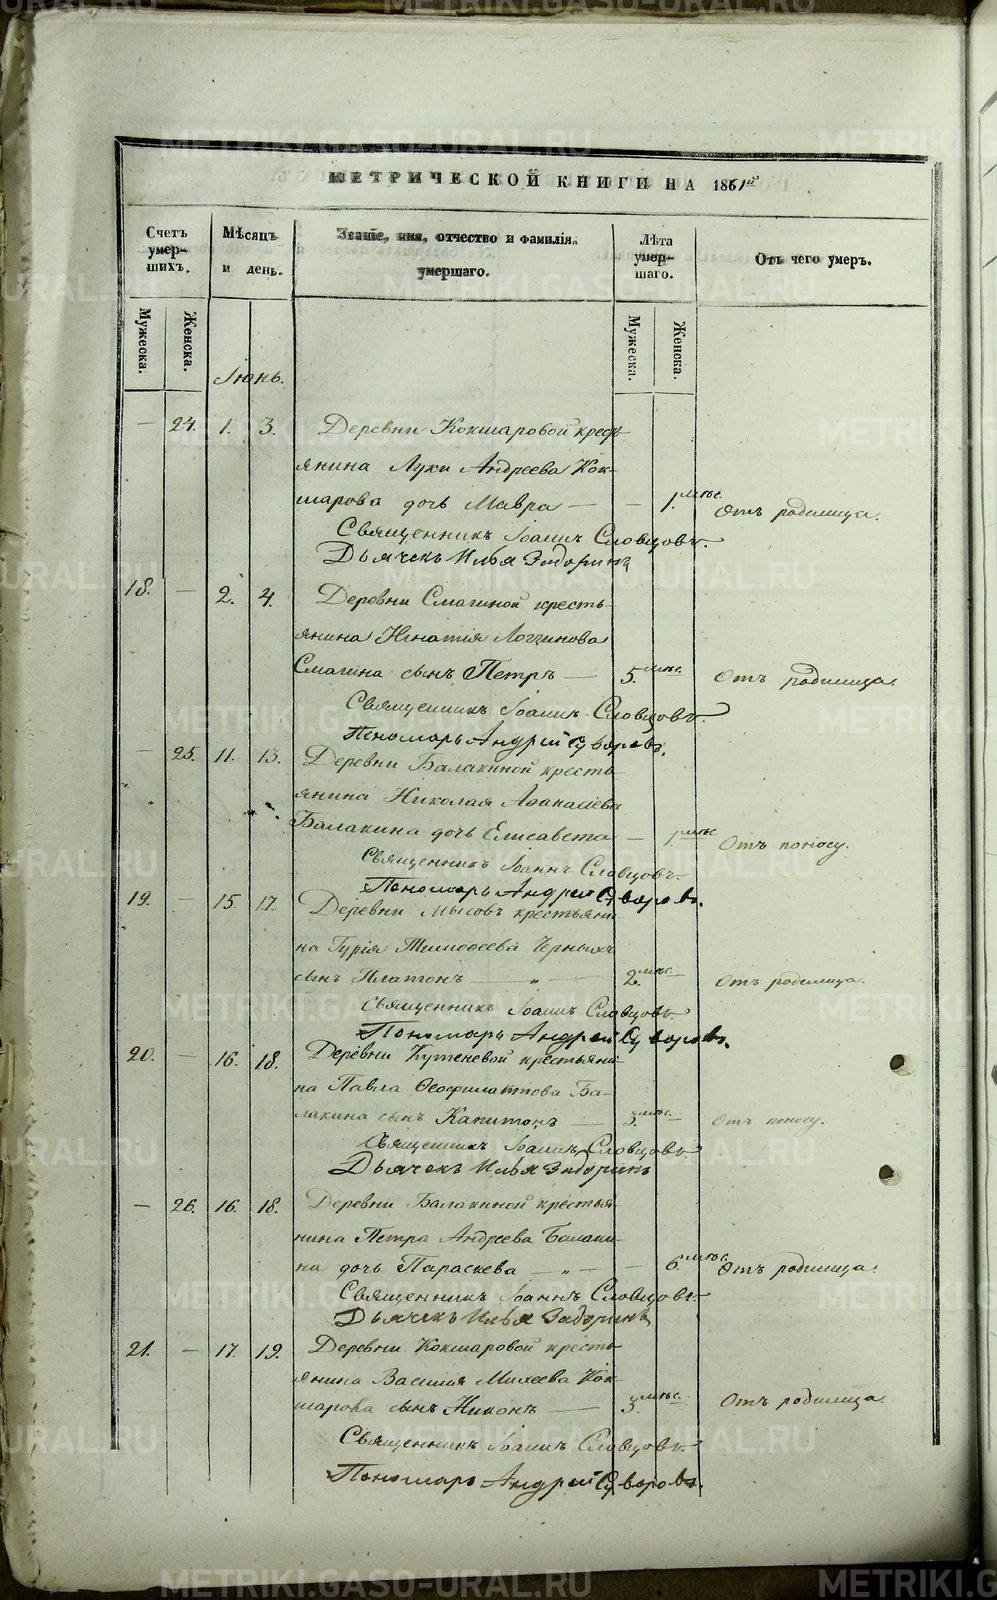 МЕТРИЧЕСКОЙ КНИГИ НА 1861й
Счетъ умерших. Мѣсяцъ и день. Званіе, имя, отчество и фамилія умершаго. Лѣта умершаго. Отъ чего умеръ.
Мужеска. Женска. Мужеска. Женска.
Іюнь.
— 24. 1. 3. Деревни Кокшаровой крест
янина Луки Андреева Кок-
шарова дочь Мавра — — 1. мѣс. Отъ родимца.
Священникъ Іоаннъ Словцовъ.
Дьячекъ Илья Задоринъ
18. — 2. 4. Деревни Смагиной кресть
янина Игнатія Логгинова
Смагина сынъ Петръ — 5. мѣс. Отъ родимца.
Священникъ Іоаннъ Словцовъ.
Пономарь Андрей Суворовъ.
— 25. 11. 13. Деревни Балакиной кресть
янина Николая Аѳанасіева
Балакина дочь Елисавета — 1. мѣс Отъ поносу.
Священникъ Іоаннъ Словцовъ.
Пономарь Андрей Суворовъ.
19. — 15. 17. Деревни Мысовъ крестьяни
на Гурія Тимоѳеева Черныхъ
сынъ Платонъ — „ — 2. мѣс. Отъ родимца.
Священникъ Іоаннъ Словцовъ
Пономарь Андрей Суворовъ.
20. — 16. 18. Деревни Кутеневой крестьяни
на Павла Ѳеофилактова Ба-
лакина сынъ Капитонъ — 3. мѣс. Отъ поносу.
Священникъ Іоаннъ Словцовъ
Дьячекъ Илья Задоринъ
— 26. 16. 18. Деревни Балакиной крестья
нина Петра Андреева Балаки-
на дочь Параскева — „ — — 6. мѣс. Отъ родимца.
Священникъ Іоаннъ Словцовъ
Дьячекъ Илья Задоринъ
21. — 17. 19. Деревни Кокшаровой кресть
янина Василія Михеева Кок-
шарова сынъ Никонъ — 3. мѣс. Отъ родимца
Священникъ Іоаннъ Словцовъ.
Пономарь Андрей Суворовъ.
METRIKI.GASO-URAL.RU